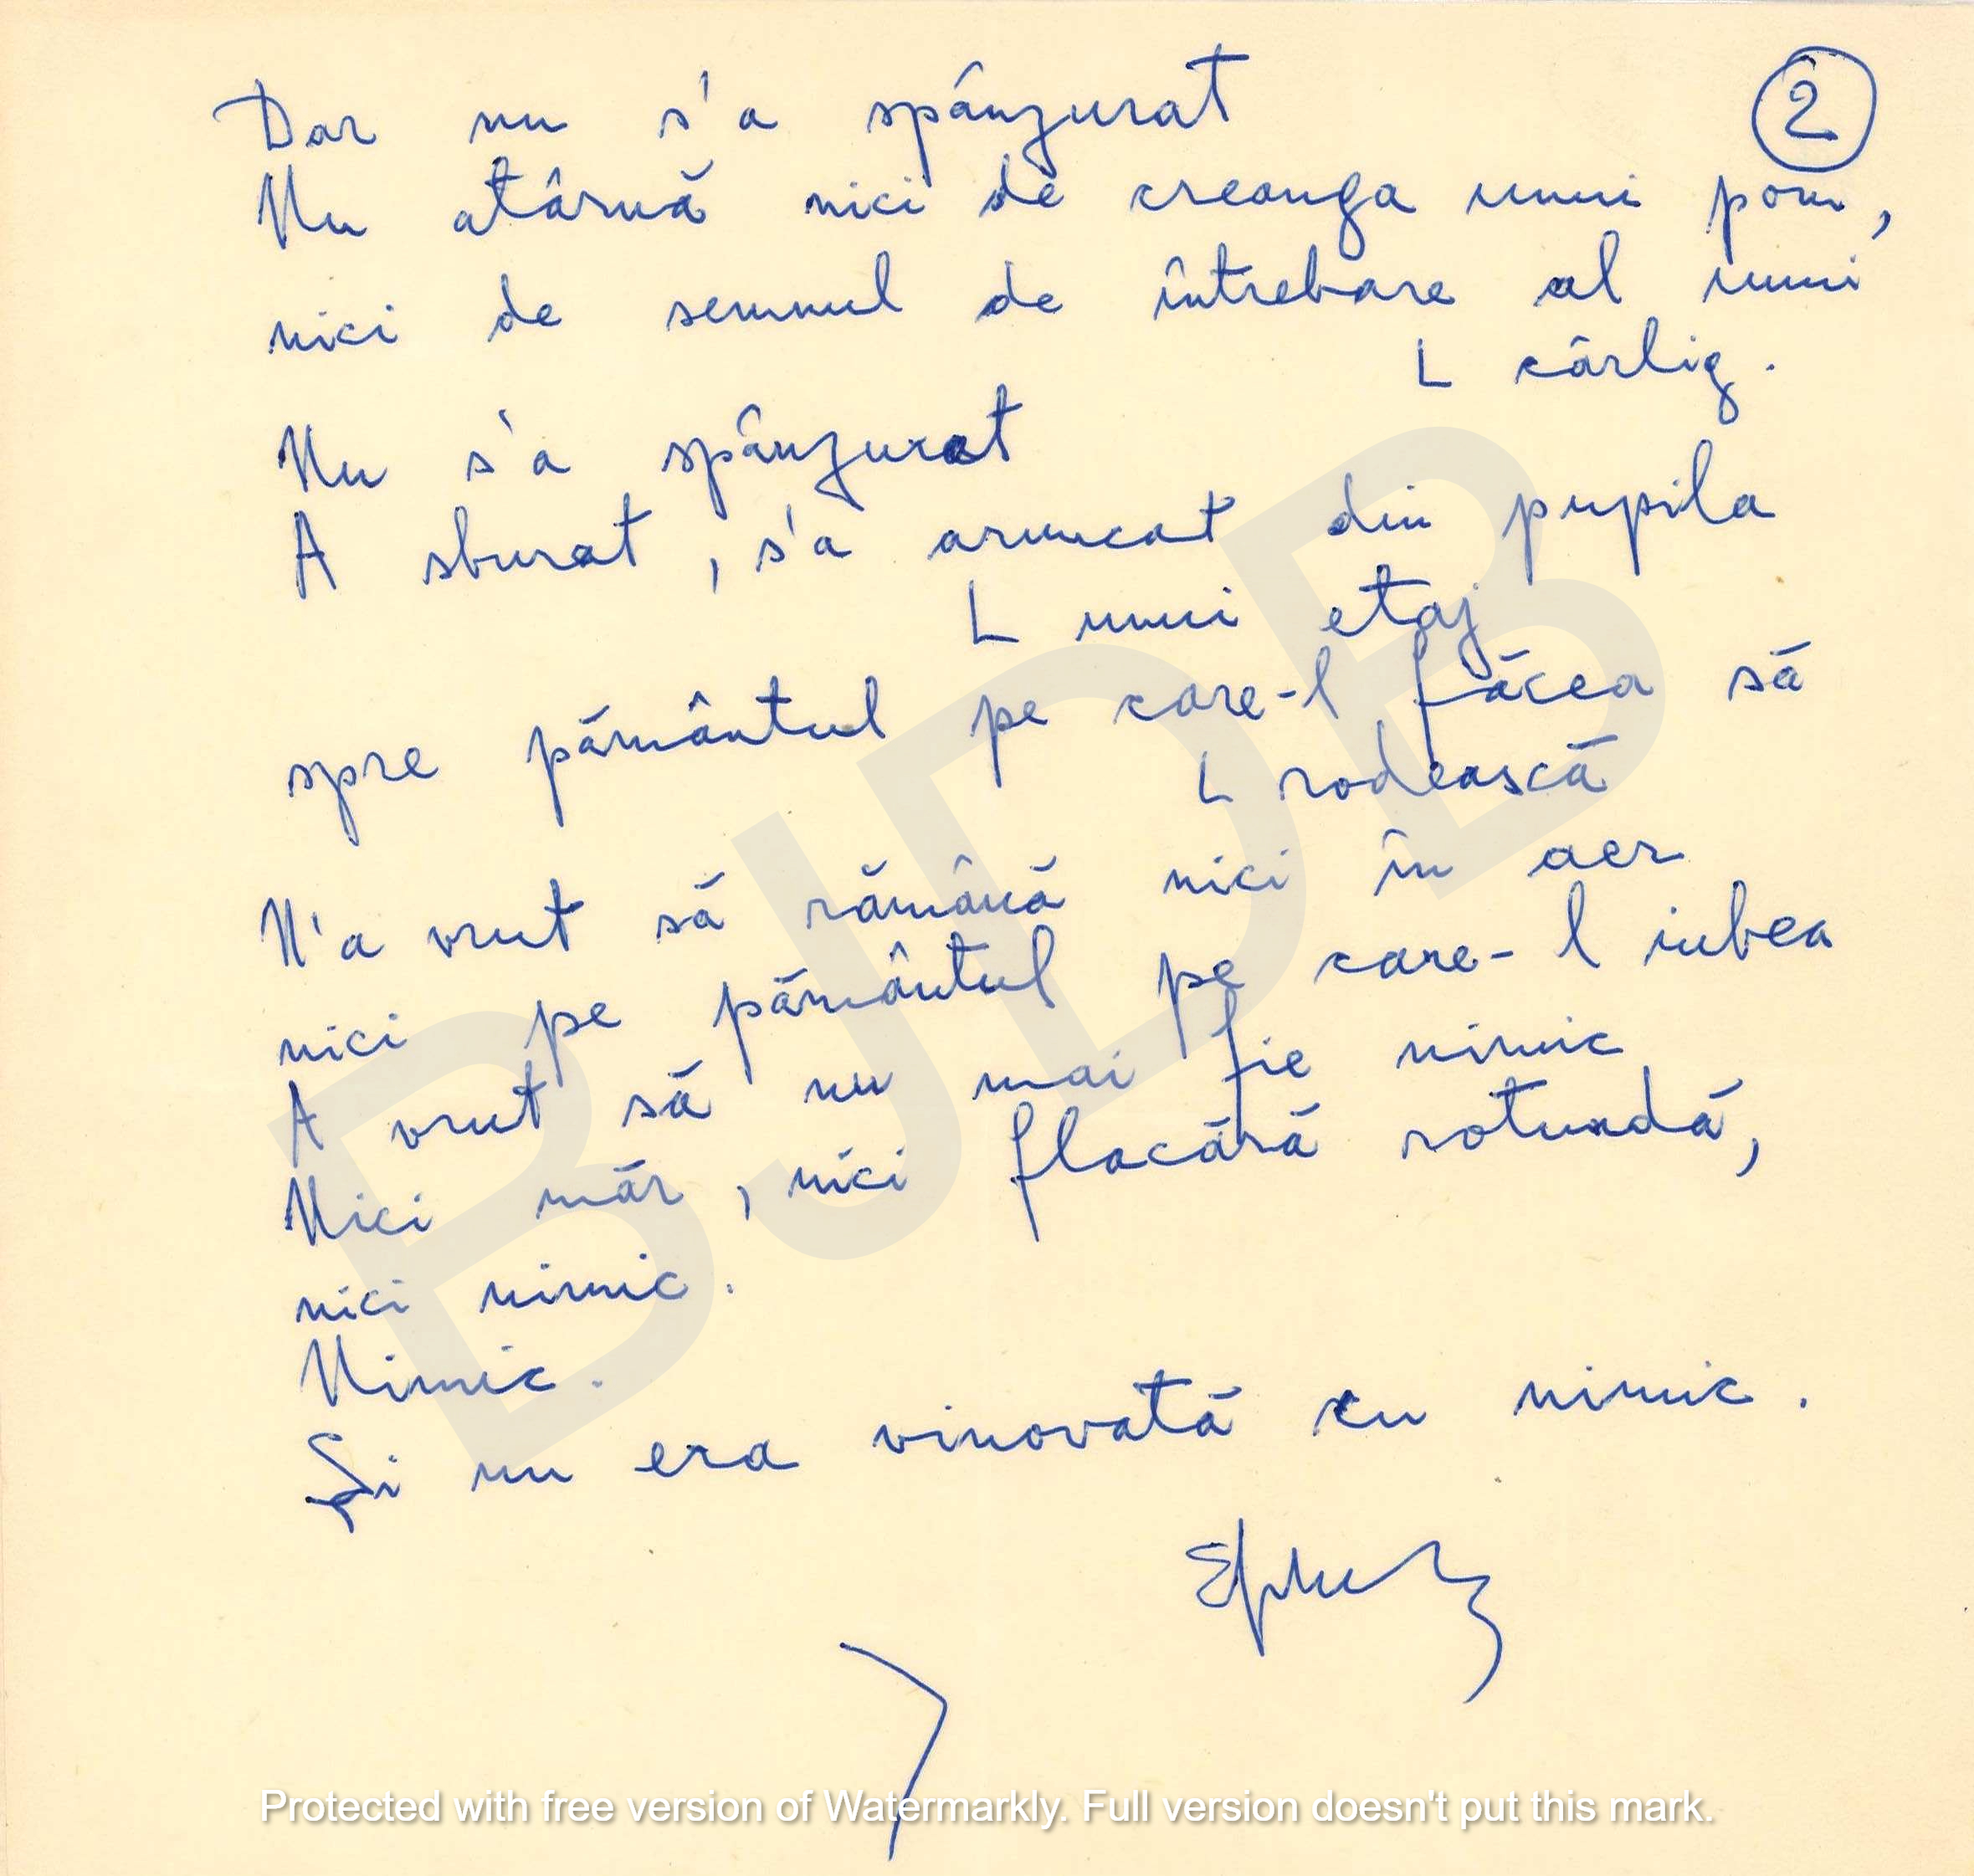 2
Dar nu s'a spânzurat
Nu atârnă nici de creanga unui pom,
nici de semnul de întrebare al unui
L cârlig.
Nu s'a spânzurat
A sburat, s'a aruncat din pupila
L unui etaj
spre pământul pe care-l făcea să
L rodească
N'a vrut să rămână nici în aer
nici pe pământul pe care-l iubea
A vrut să nu mai fie nimic
Nici măr, nici flacără rotundă,
nici nimic.
Nimic.
Și nu era vinovată cu nimic.
BJDB
Protected with free version of Watermarkly. Full version doesn't put this mark.